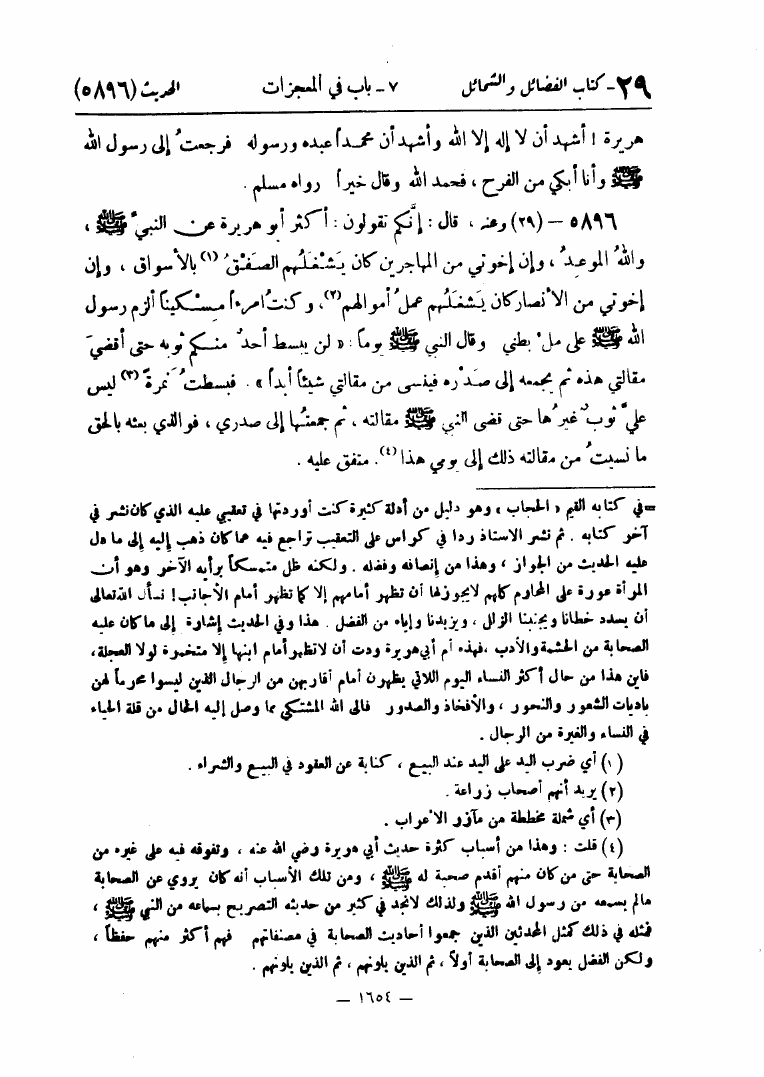 ٢٩- كتاب الفضائل والشمائل ٧- باب في المعجزات الحديث (٥٨٩٦)
هريرة ! أشهد أن لا إله إلا الله وأشهد أن محمداً عبده ورسوله فرجعتُ إلى رسول الله
ﷺ وأنا أبكي من الفرح ، فحمد الله وقال خيراً رواه مسلم .
٥٨٩٦ – (٢٩) وعنه ، قال : إنَّكم تقولون : أكثر أبو هريرة عن النبيِّ ﷺ ،
واللهُ الموعدُ ، وإن إخوتي من المهاجرين كان يَشْغَلُهم الصَفْقُ(١) بالأسواق ، وإن
إخوتي من الأنصار كان يَشغَلُهم عملُ أموالهم(٢)، وكنتُ امرءاً مِسْكيناً ألزم رسول
الله ﷺ على ملْ بطني وقال النبي ﷺ يوماً : « لن يبسط أحدٌ منكم ثوبه حتى أقضيَ
مقالتي هذه ثم يجمعه إلى صَدْره فينسى من مقالتي شيئاً أبداً » . فبسطتُ نمرةً(٣) ليس
عليَّ ثوبٌ غيرُها حتى قضى النبي ﷺ مقالته ، ثم جمعتُها إلى صدري ، فوالذي بعثه بالحق
ما نسيتُ من مقالته ذلك إلى يومي هذا(٤). متفق عليه .
=في كتابه القيم « الحجاب » وهو دليل من أدلة كثيرة كنت أوردتها في تعقيبي عليه الذي كان نشر في
آخر كتابه . ثم نشر الاستاذ ردا في كراس على التعقيب تراجع فيه عما كان ذهب إليه إلى ما دل
عليه الحديث من الجواز ، وهذا من إنصافه وفضله . ولكنه ظل متمسكاً برأيه الآخر وهو أن
المرأة عورة على المحارم كلهم لا يجوز لها أن تظهر أمامهم إلا كما تظهر أمام الأجانب ! نسأل الله تعالى
أن يسدد خطانا ويجنبنا الزلل ، ويزيدنا وإياه من الفضل . هذا وفي الحديث إشارة إلى ما كان عليه
الصحابة من الحشمة والأدب ، فهذه أم أبي هريرة ودت أن لا تظهر أمام ابنها إلا متخمرة لولا العجلة،
فاين هذا من حال أكثر النساء اليوم اللاتي يظهرون أمام أقاربهن من الرجال الذين ليسوا محرماً لهن
باديات الشعور والنحور ، والأفخاذ والصدور فالى الله المشتكى مما وصل إليه الحال من قلة الحياء
في النساء والغيرة من الرجال .
(١) أي ضرب اليد على اليد عند البيع ، كناية عن العقود في البيع والشراء .
(٢) يريد أنهم أصحاب زراعة .
(٣) أي شملة مخططة من مآزر الاعراب .
(٤) قلت : وهذا من أسباب كثرة حديث أبي هريرة رضي الله عنه ، وتفوقه فيه على غيره من
الصحابة حتى من كان منهم أقدم صحبة له ﷺ ، ومن تلك الأسباب أنه كان يروي عن الصحابة
مالم يسمعه من رسول الله ﷺ ولذلك لانجد في كثير من حديثه التصريح بسماعه من النبي ﷺ ،
فمثله في ذلك كمثل المحدثين الذين جمعوا أحاديث الصحابة في مصنفاتهم فهم أكثر منهم حفظاً ،
ولكن الفضل يعود إلى الصحابة أولاً ، ثم الذين يلونهم ، ثم الذين يلونهم .
– ١٦٥٤ –